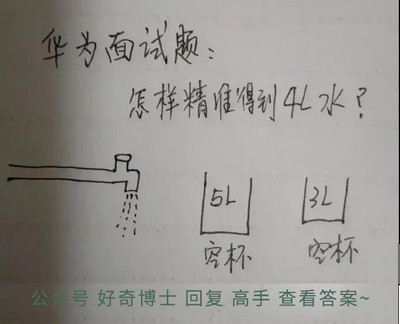 华为面试题：
怎样精准得到4L水？
5L
3L
空杯
空杯
公众号 好奇博士 回复 高手 查看答案~